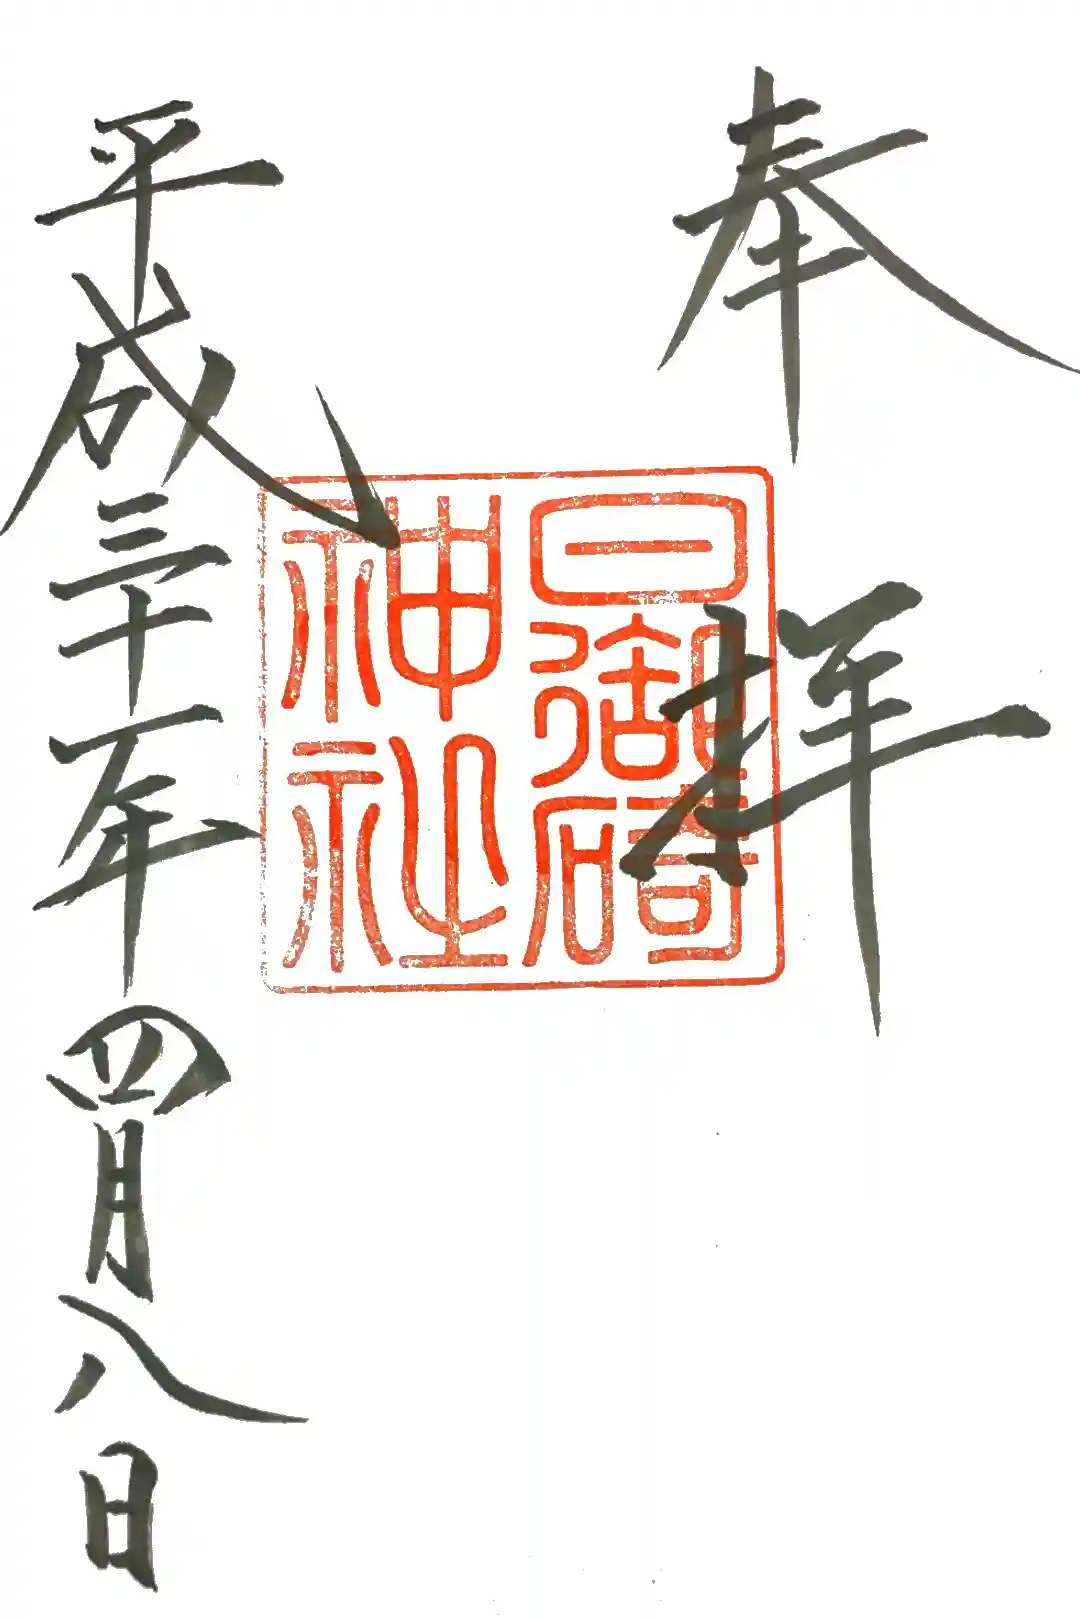 奉拝
日御碕
神社
平成三十一年四月八日